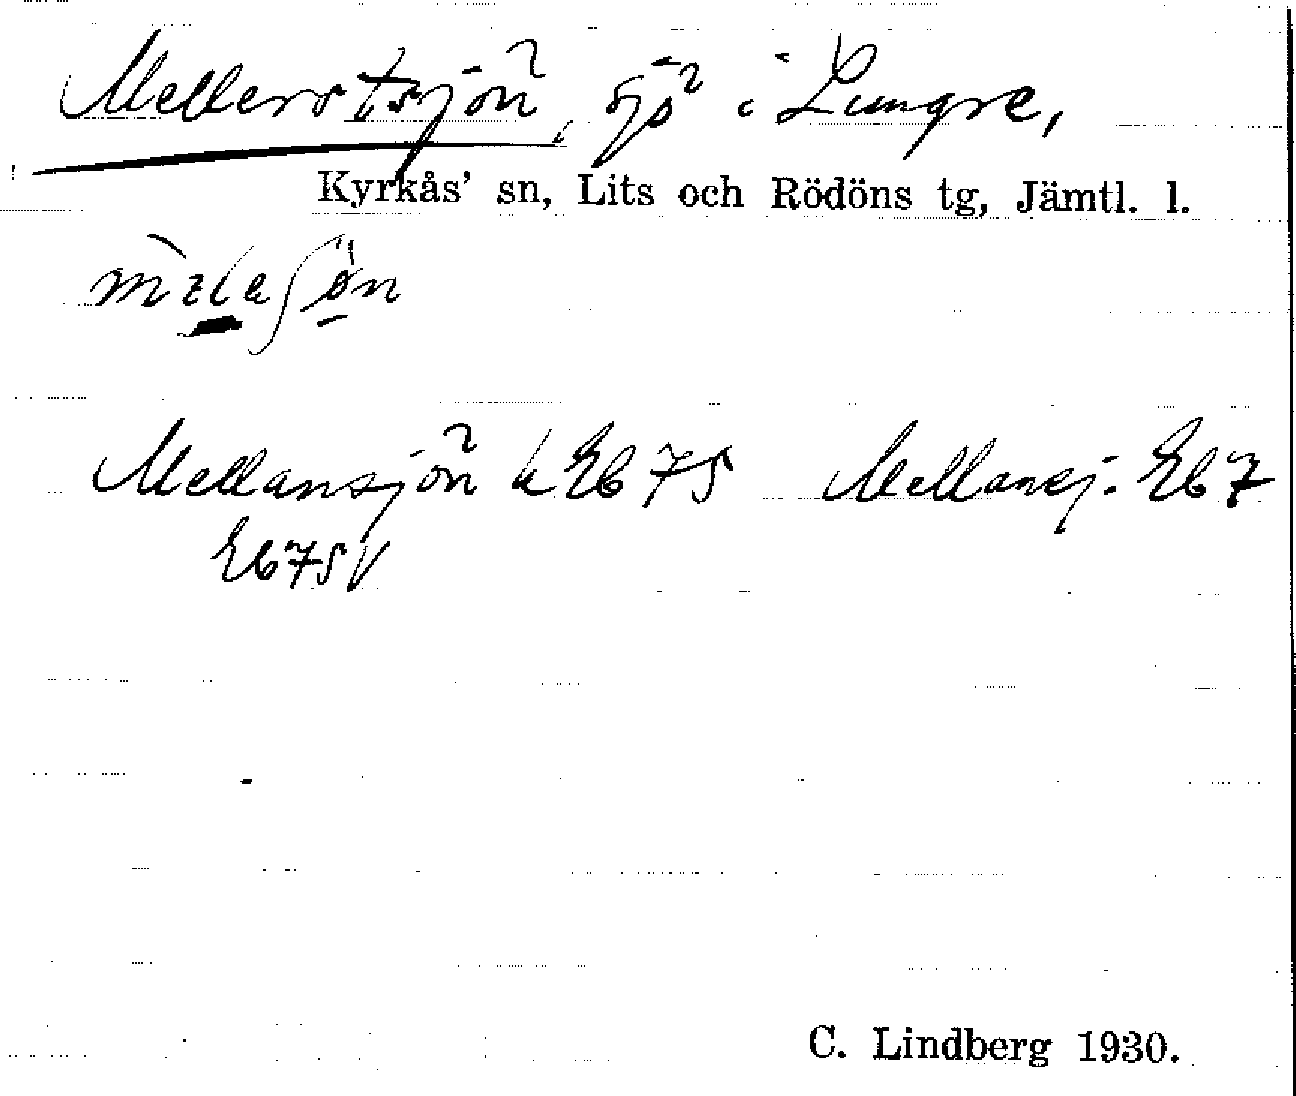 Mellerstsjön, sjö i Lungre,
Kyrkås' sn, Lits och Rödöns tg, Jämtl. l.
Mellansjön k Eb 75 Mellansj. Eb 7
Eb75V
C. Lindberg 1930.